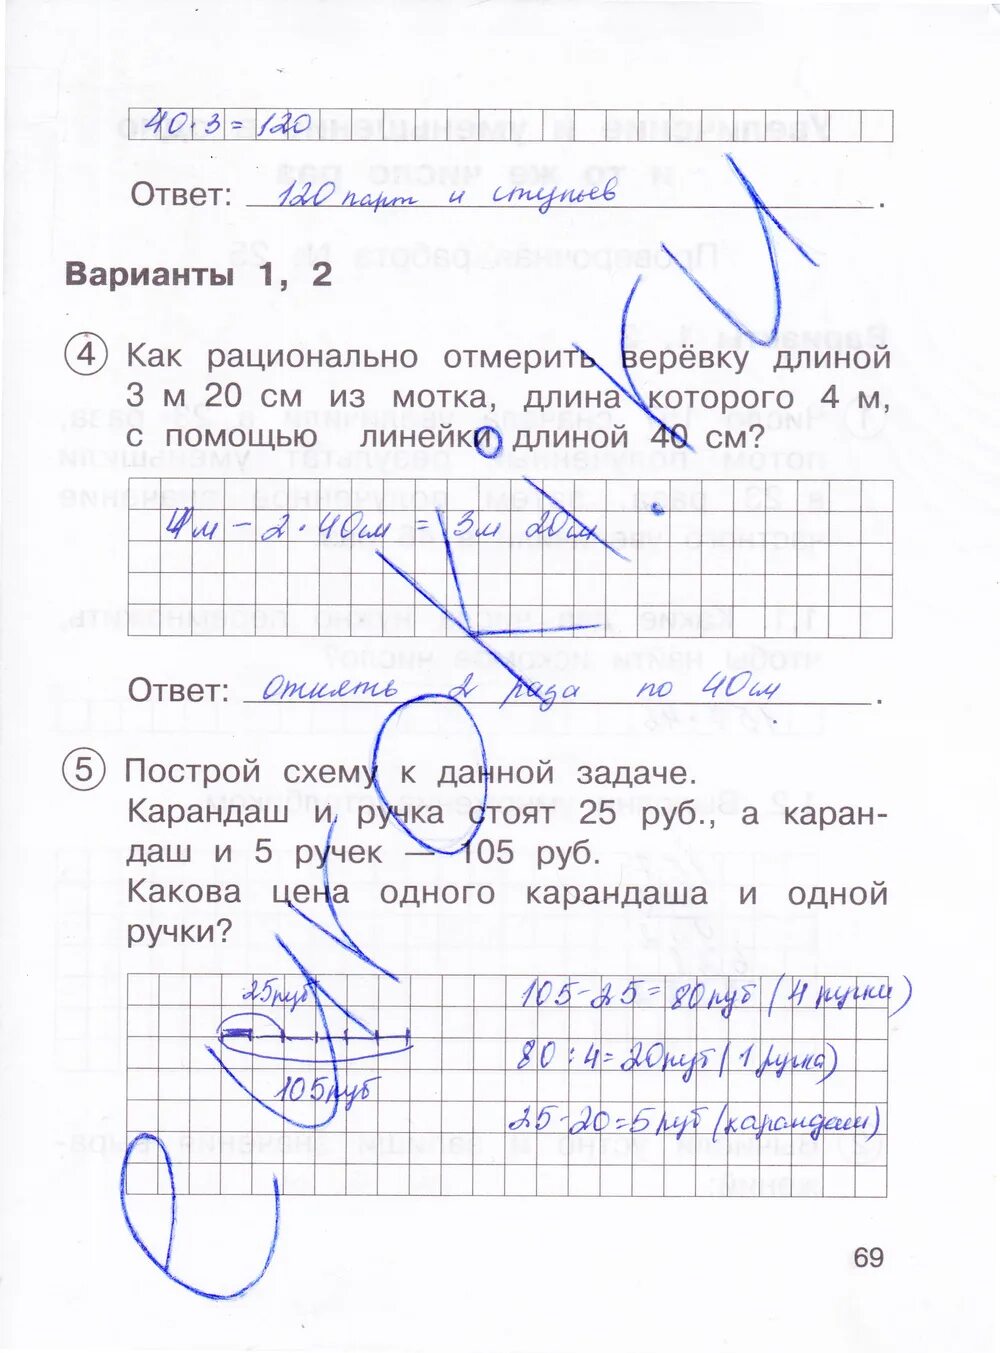 40·3=120
Ответ: 120 парт и стульев.
Варианты 1, 2
4 Как рационально отмерить верёвку длиной
3 м 20 см из мотка, длина которого 4 м,
с помощью линейки длиной 40 см?
4м - 2·40см = 3м 20см
Ответ: отнять 2 раза по 40см.
5 Построй схему к данной задаче.
Карандаш и ручка стоят 25 руб., а каран-
даш и 5 ручек — 105 руб.
Какова цена одного карандаша и одной
ручки?
25руб
105руб
105-25=80руб (4 ручки)
80:4=20руб (1 ручка)
25-20=5руб (карандаш)
69